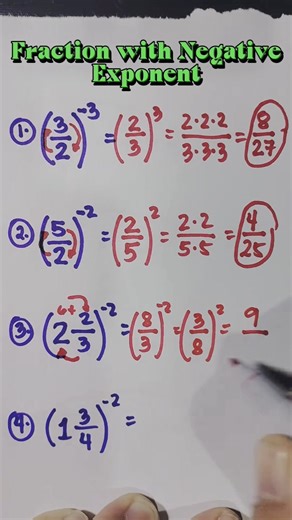 Fraction with Negative
Exponent
1. (3/2)^-3 = (2/3)^3 = 2·2·2/3·3·3 = 8/27
2. (5/2)^-2 = (2/5)^2 = 2·2/5·5 = 4/25
6+
3. (2 2/3)^-2 = (8/3)^-2 = (3/8)^2 = 9/
4. (1 3/4)^-2 =